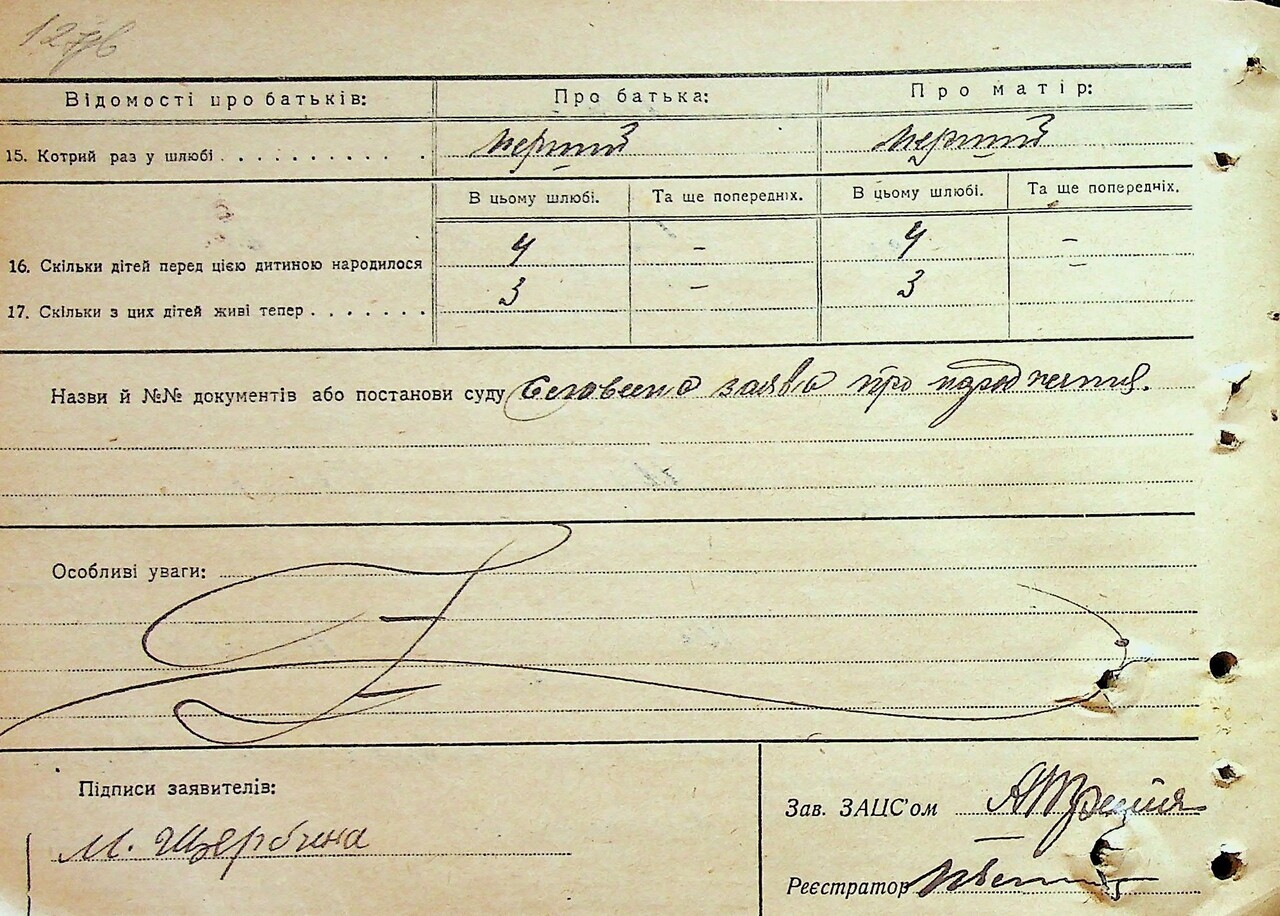 Відомості про батьків: Про батька: Про матір:
15. Котрий раз у шлюбі . . . . . . . . . . . перший перший
В цьому шлюбі. Та ще попередніх. В цьому шлюбі. Та ще попередніх.
16. Скільки дітей перед цією дитиною народилося 4 – 4 –
17. Скільки з цих дітей живі тепер . . . . . . . 3 – 3 –
Назви й №№ документів або постанови суду Словесна заява про народження.
Особливі уваги:
Підписи заявителів:
М. Щербина
Зав. ЗАЦС'ом
Реєстратор